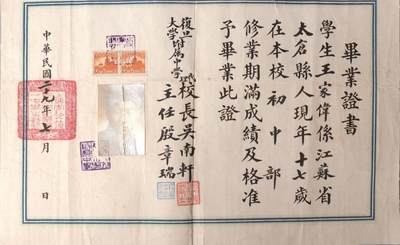 畢業證書
學生王家偉係江蘇省
太倉縣人現年十七歲
在本校初中部
修業期滿成績及格准
予畢業此證
復旦大學附屬中學校長吳南軒
主任殷章瑞
中華民國二十九年七月 日